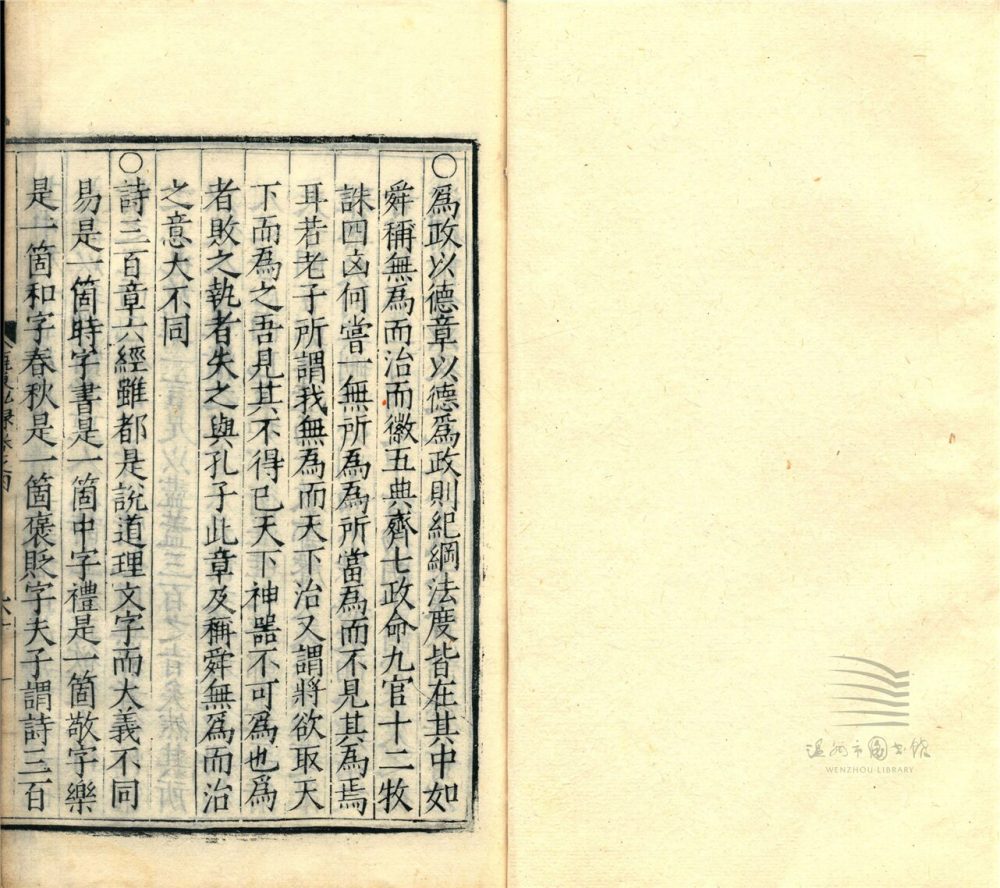 ○爲政以德章以德爲政則紀綱法度皆在其中如
舜稱無爲而治而徽五典齊七政命九官十二牧
誅四凶何嘗一無所爲爲所當爲而不見其爲焉
耳若老子所謂我無爲而天下治又謂將欲取天
下而爲之吾見其不得已天下神器不可爲也爲
者敗之執者失之與孔子此章及稱舜無爲而治
之意大不同
○詩三百章六經雖都是說道理文字而大義不同
易是一箇時字書是一箇中字禮是一箇敬字樂
是一箇和字春秋是一箇褒貶字夫子謂詩三百
溫州市圖書館
WENZHOU LIBRARY